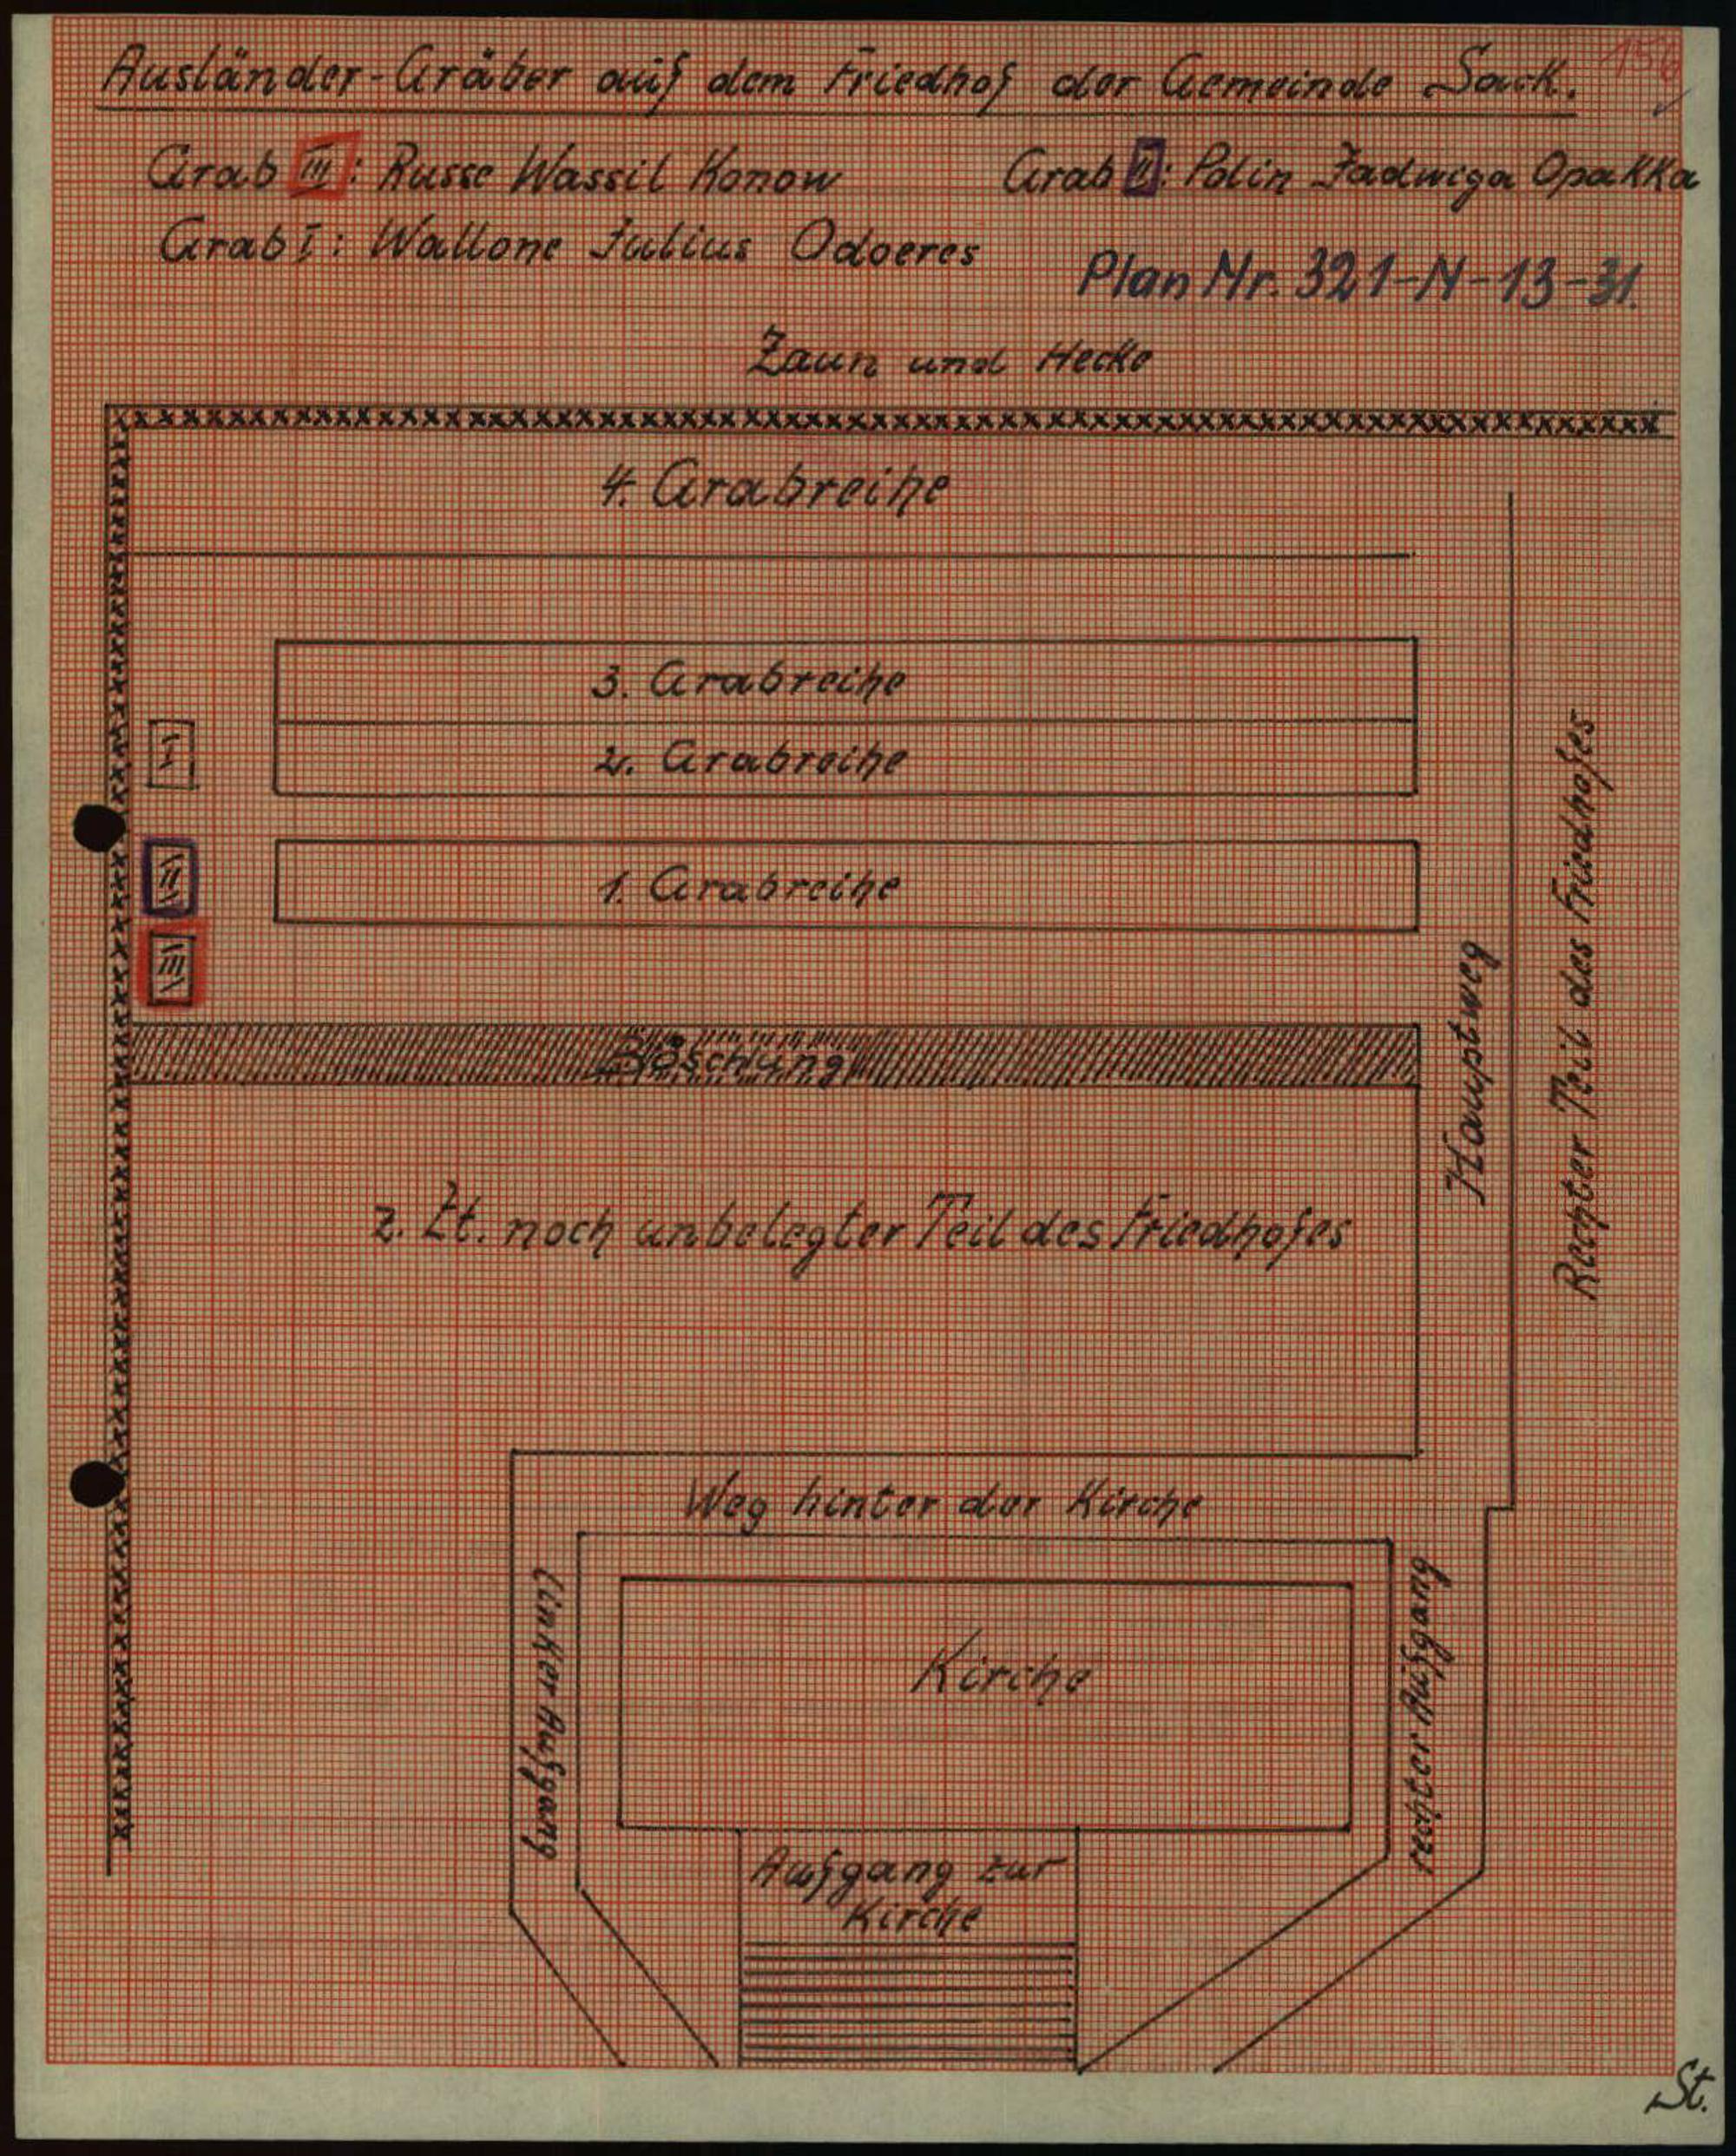 Ausländer-Gräber auf dem Friedhof der Gemeinde Sack.
156
Grab III: Russe Wassil Konow
Grab II: Polin Jadwiga Opakka
Grab I: Wallone Julius Odoeres
Plan Nr. 321-N-13-31.
Zaun und Hecke
4. Grabreihe
3. Grabreihe
2. Grabreihe
I
1. Grabreihe
II
III
Böschung
Hauptweg
Rechter Teil des Friedhofes
z. Zt. noch unbelegter Teil des Friedhofes
Weg hinter der Kirche
Linker Aufgang
Kirche
rechter Aufgang
Aufgang zur
Kirche
St.